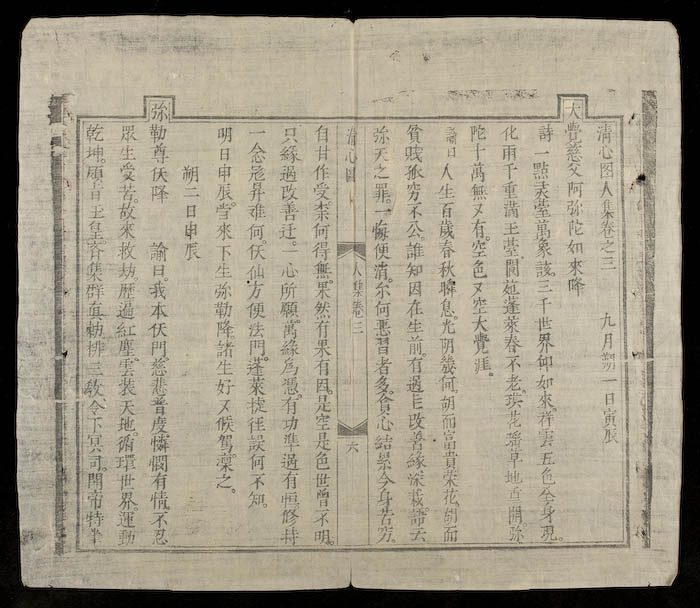 清心图人集卷之三　　九月朔一日寅辰
大覺慈父阿弥陀如來降
詩一點灵臺萬象該三千世界仰如來祥雲五色全身現
化雨千重潤玉臺閬苑蓬萊春不老琪花瑶草地重開弥
陀十萬無又有空色又空大覺涯
諭曰人生百歲春秋瞬息光阴幾何胡而富貴荣花胡而
貧賤孤穷不公誰知因在生前有過已改善緣深載諺云
弥天之罪一悔便消尔何悪習者多貪心結累今身苦穷
清心图　人集卷三　六
自甘作受柰何得無果然有果有因是空是色世曾不明
只緣過改善迁一心所願萬緣為憑有功準過有恒修持
一念危昇难何仸仙方便法門蓬萊捷徃誤何不知
明日申辰堂來下生弥勒降諸生好又候駕凜之
朔二日申辰
弥勒尊仸降　諭曰我本仸門慈悲普度憐憫有情不忍
眾生受苦故來救劫歴遍紅塵雲装天地循環世界運動
乾坤願旨玉皇斉集群真勅排三教令下冥司関帝特奉